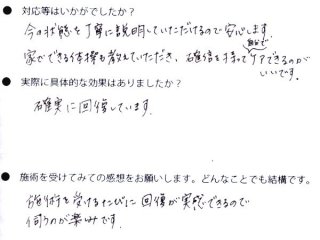 ● 対応等はいかがでしたか?
今の状態を丁寧に説明していただけるので安心します。
家でできる体操も教えていただき、確信を持って自分でケアできるのが
いいです。
● 実際に具体的な効果はありましたか?
確実に回復しています。
● 施術を受けてみての感想をお願いします。どんなことでも結構です。
施術を受けるたびに回復が実感できるので
伺うのが楽しみです。